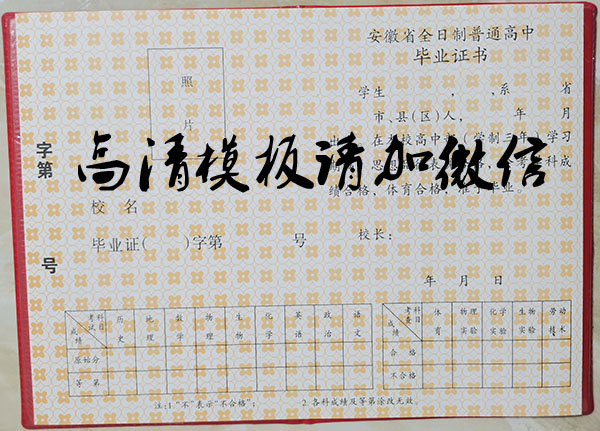 安徽省全日制普通高中
毕业证书
照
片
学生 , ,系 省
市、县(区)人, 年 月
在本校高中 (学制三年)学习
绩合格,体育合格,准予毕业。
高清模板请加微信
字第
号
校 名
毕业证( )字第 号
校长:
年 月 日
考试科目 成绩 历史 地理 数学 物理 生物 化学 英语 政治 语文
原始分
等 第
考查科目 成绩 体育 物理实验 化学实验 生物实验 劳动技术
合 格
不合格
注:1 “不”表示“不合格”; 2.各科成绩及等第涂改无效。